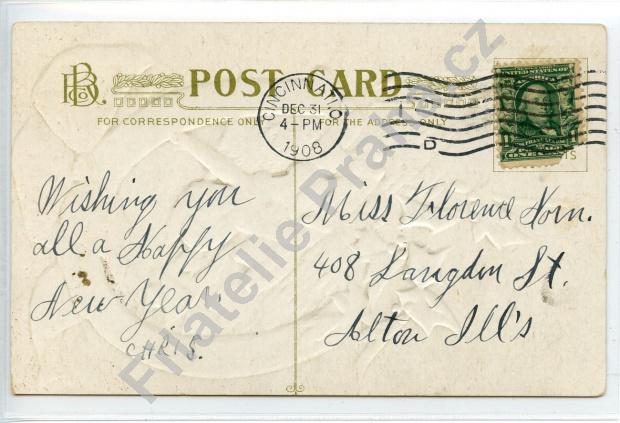 BRCo POST CARD
CINCINNATI, O.
DEC 31
4-PM
1908
D
UNITED STATES OF AMERICA
1 1
ONE
FOR CORRESPONDENCE ONLY
FOR THE ADDRESS ONLY
Wishing you
all a Happy
New Year.
CHRIS.
Miss Florence Horn.
408 Langdon St.
Alton Ill's
Filatelie Praha.cz